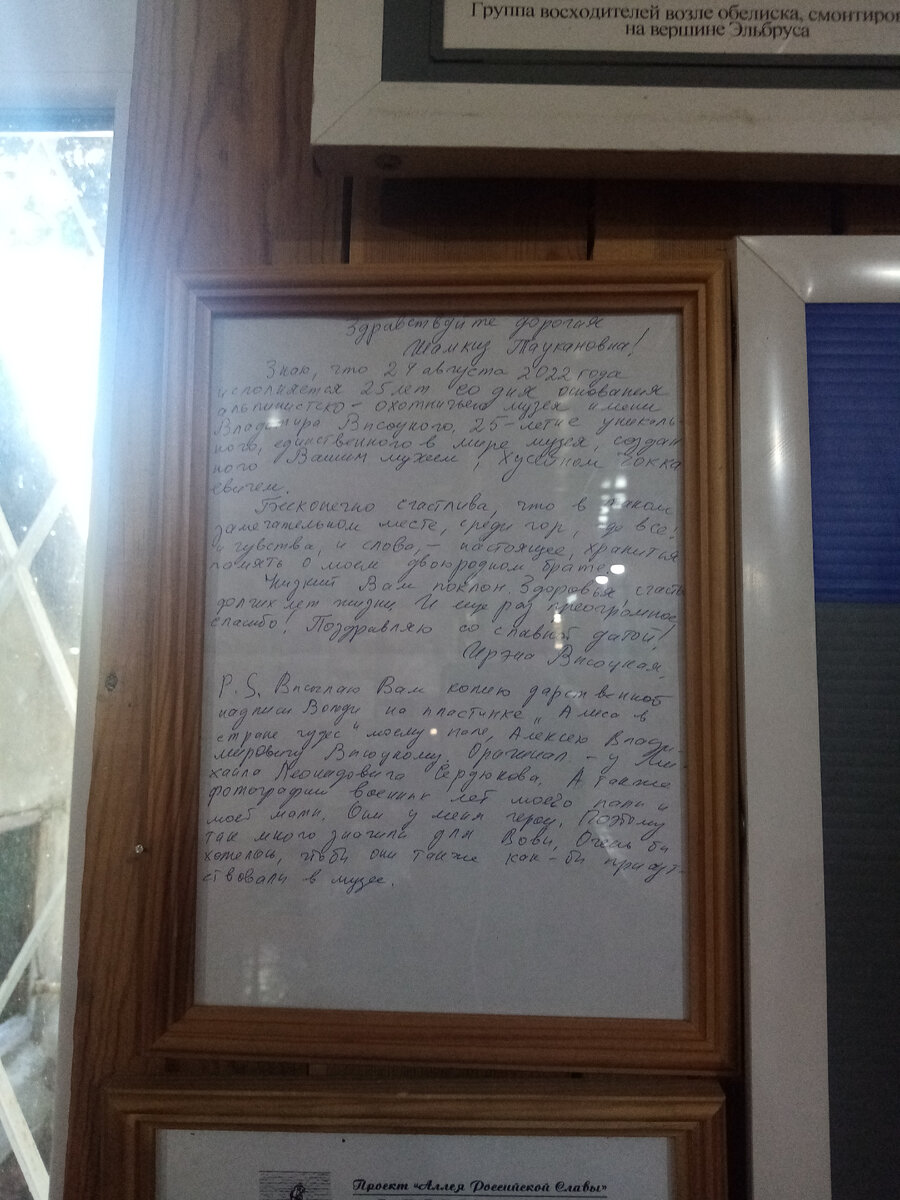 Группа восходителей возле обелиска, смонтиров
на вершине Эльбруса
Здравствуйте дорогая
Шамкиз Таукановна!
Знаю, что 24 августа 2022 года
исполняется 25 лет со дня основания
альпинистско-охотничьего музея имени
Владимира Высоцкого. 25-летие уникаль
ного, единственного в мире музея, создан
ного Вашим мужем, Хусейном Чокка
евичем.
Бесконечно счастлива, что в таком
замечательном месте, среди гор, где все!
и чувства, и слова, - настоящее, хранится
память о моем двоюродном брате.
Низкий Вам поклон. Здоровья, счасть
долгих лет жизни. И еще раз преогромное
спасибо! Поздравляю со славной датой!
Ирэна Высоцкая.
P.S. Высылаю Вам копию дарственной
надписи Володи на пластинке „Алиса в
стране чудес" моему папе, Алексею Влади
мировичу Высоцкому. Оригинал - у Ми
хаила Леонидовича Сердюкова. А также
фотографии военных лет моего папы и
моей мамы. Они у меня герои. Поэтому
так много значили для Вовы. Очень бы
хотелось, чтобы они также как-бы присут-
ствовали в музее.
Проект "Аллея Российской Славы"